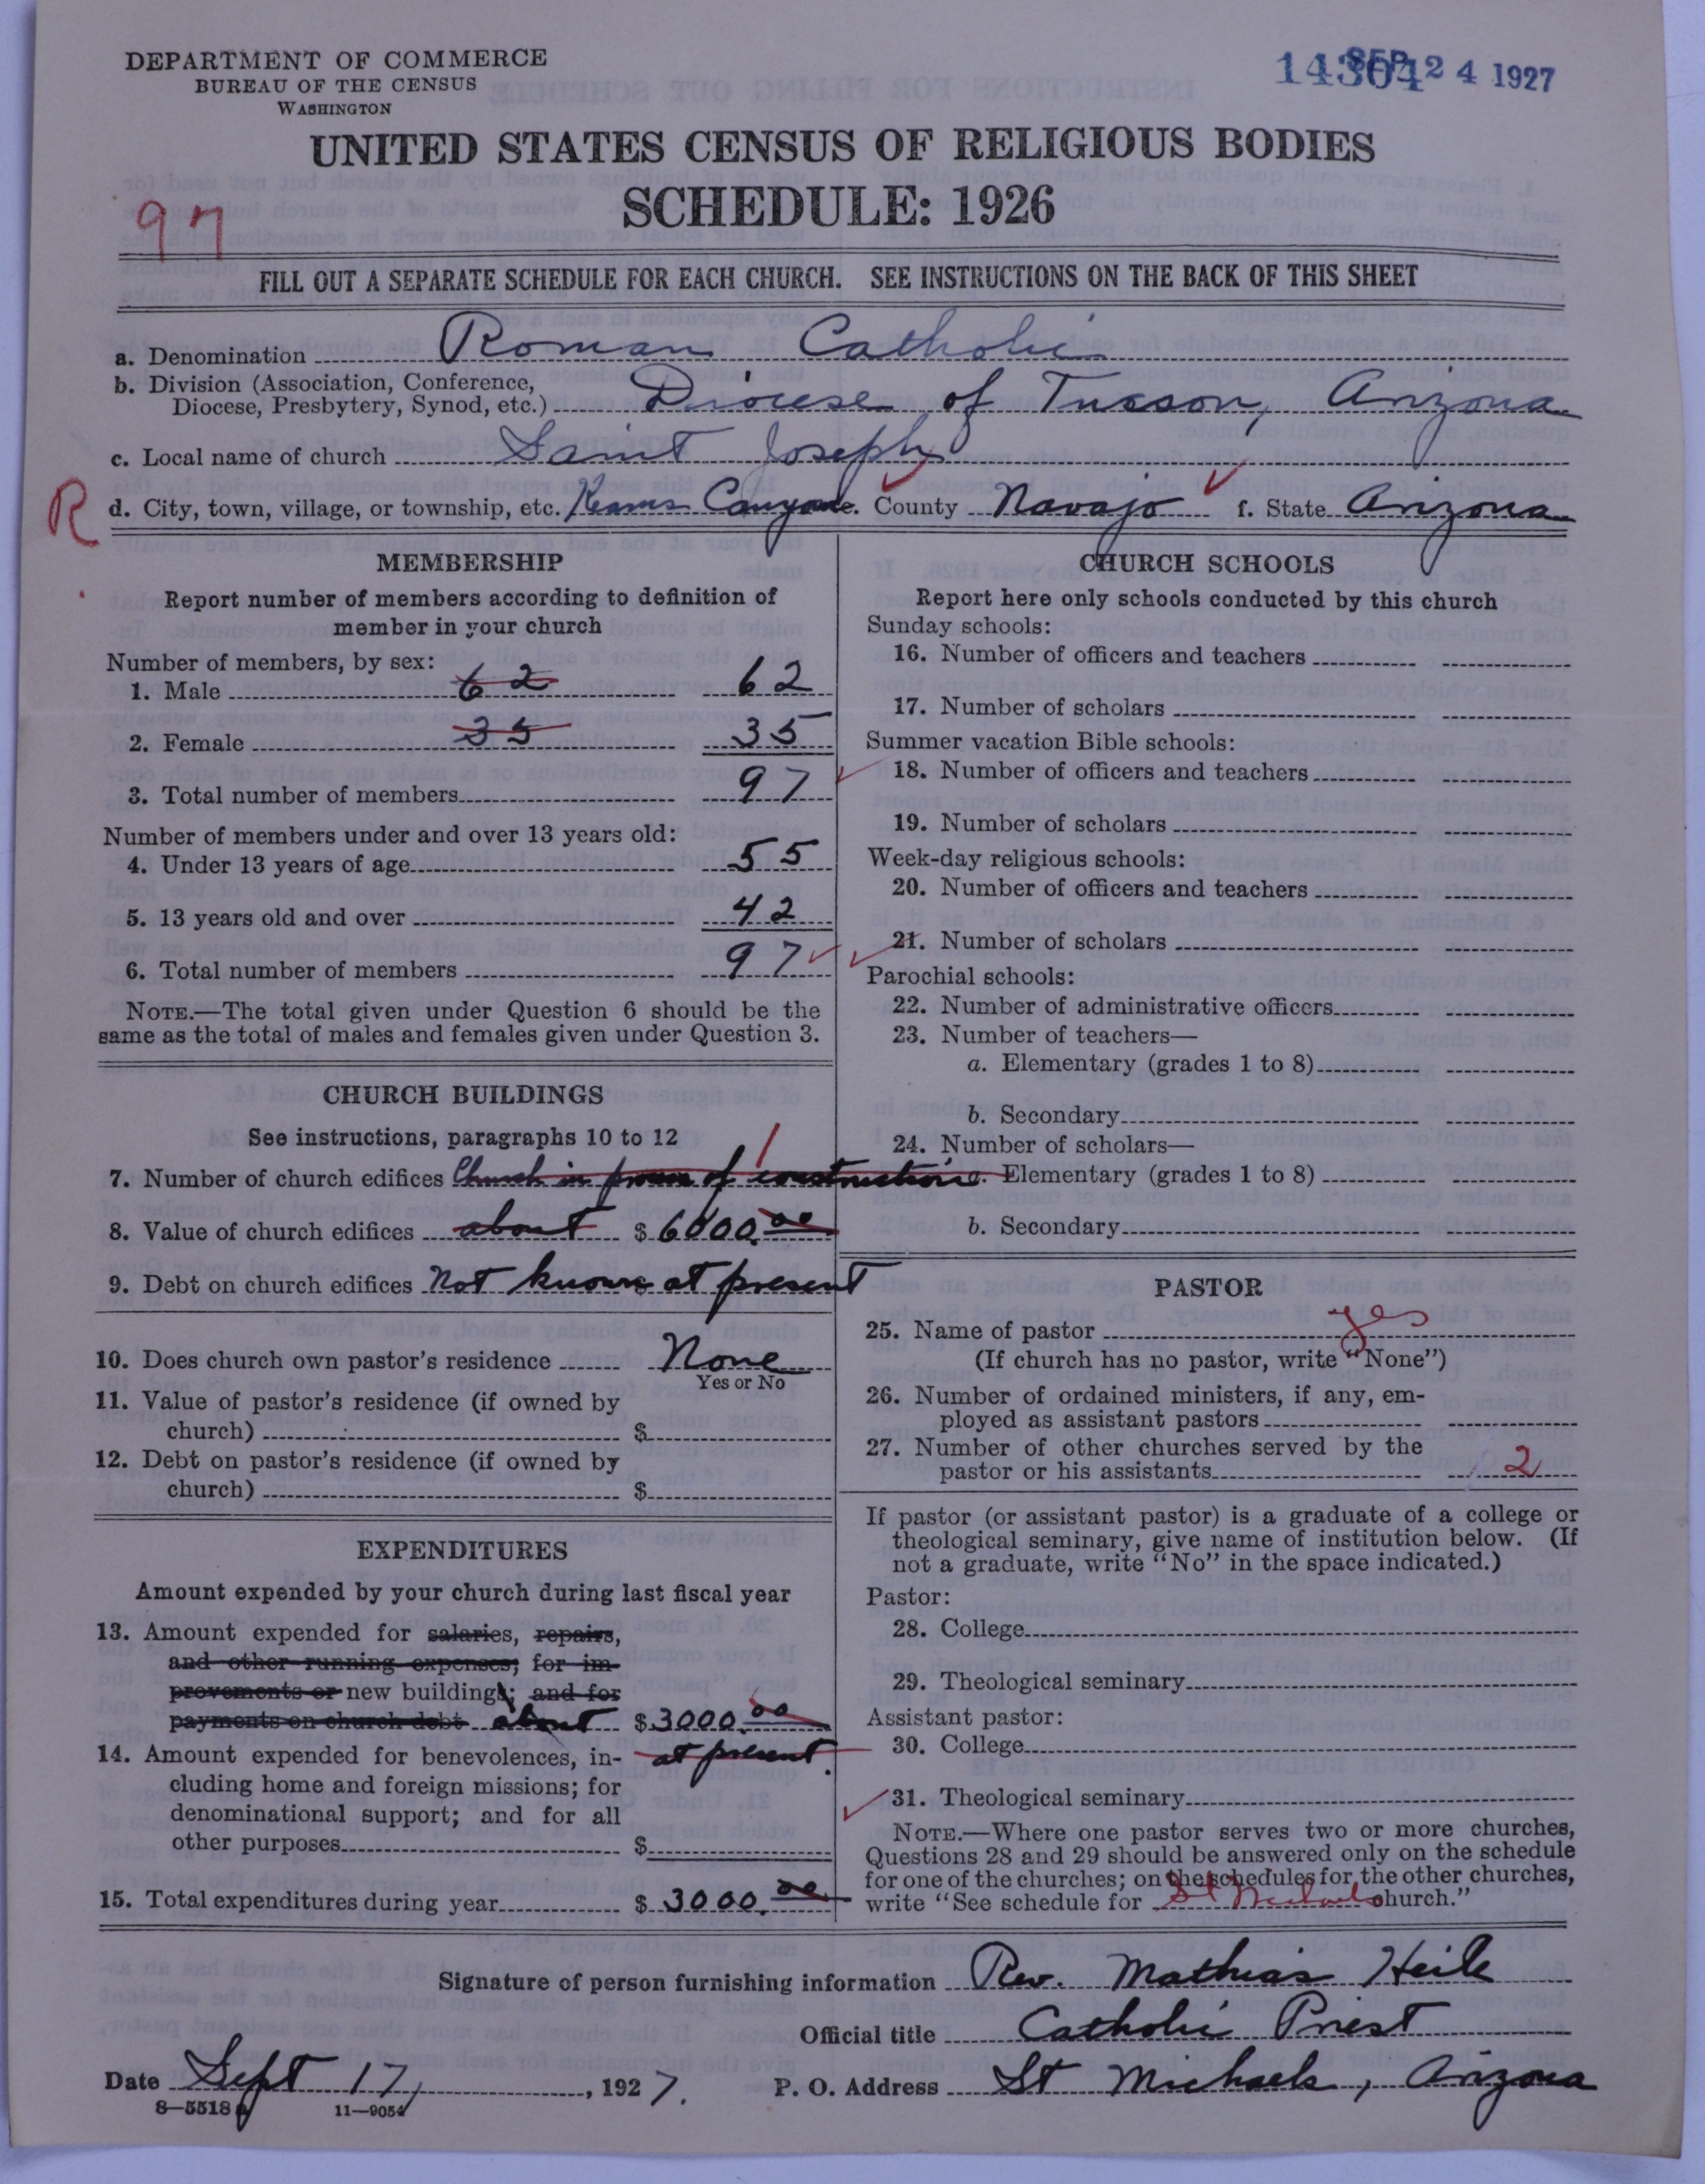 DEPARTMENT OF COMMERCE
BUREAU OF THE CENSUS
WASHINGTON
14304 SEP 24 1927
UNITED STATES CENSUS OF RELIGIOUS BODIES
SCHEDULE: 1926
97
FILL OUT A SEPARATE SCHEDULE FOR EACH CHURCH. SEE INSTRUCTIONS ON THE BACK OF THIS SHEET
a. Denomination Roman Catholic
b. Division (Association, Conference,
Diocese, Presbytery, Synod, etc.) Diocese of Tucson, Arizona
c. Local name of church Saint Joseph
R d. City, town, village, or township, etc. Keams Canyon e. County Navajo f. State Arizona
MEMBERSHIP
Report number of members according to definition of
member in your church
Number of members, by sex:
1. Male 62 62
2. Female 35 35
3. Total number of members 97
Number of members under and over 13 years old:
4. Under 13 years of age 55
5. 13 years old and over 42
6. Total number of members 97
NOTE.—The total given under Question 6 should be the
same as the total of males and females given under Question 3.
CHURCH BUILDINGS
See instructions, paragraphs 10 to 12
7. Number of church edifices Church in process of construction 1
8. Value of church edifices about $ 6000.00
9. Debt on church edifices Not known $ at present
10. Does church own pastor's residence None
Yes or No
11. Value of pastor's residence (if owned by
church) $
12. Debt on pastor's residence (if owned by
church) $
EXPENDITURES
Amount expended by your church during last fiscal year
13. Amount expended for salaries, repairs,
and other running expenses; for im-
provements or new buildings; and for
payments on church debt about $ 3000.00
14. Amount expended for benevolences, in- at present.
cluding home and foreign missions; for
denominational support; and for all
other purposes $
15. Total expenditures during year $ 3000.00
CHURCH SCHOOLS
Report here only schools conducted by this church
Sunday schools:
16. Number of officers and teachers
17. Number of scholars
Summer vacation Bible schools:
18. Number of officers and teachers
19. Number of scholars
Week-day religious schools:
20. Number of officers and teachers
21. Number of scholars
Parochial schools:
22. Number of administrative officers
23. Number of teachers—
a. Elementary (grades 1 to 8)
b. Secondary
24. Number of scholars—
a. Elementary (grades 1 to 8)
b. Secondary
PASTOR
25. Name of pastor yes
(If church has no pastor, write "None")
26. Number of ordained ministers, if any, em-
ployed as assistant pastors
27. Number of other churches served by the
pastor or his assistants 2
If pastor (or assistant pastor) is a graduate of a college or
theological seminary, give name of institution below. (If
not a graduate, write "No" in the space indicated.)
Pastor:
28. College
29. Theological seminary
Assistant pastor:
30. College
31. Theological seminary
NOTE.—Where one pastor serves two or more churches,
Questions 28 and 29 should be answered only on the schedule
for one of the churches; on the schedules for the other churches,
write "See schedule for St Michaels church."
Signature of person furnishing information Rev. Mathias Heile
Official title Catholic Priest
Date Sept 17, 1927. P. O. Address St Michaels, Arizona
8—5518 a 11—9054